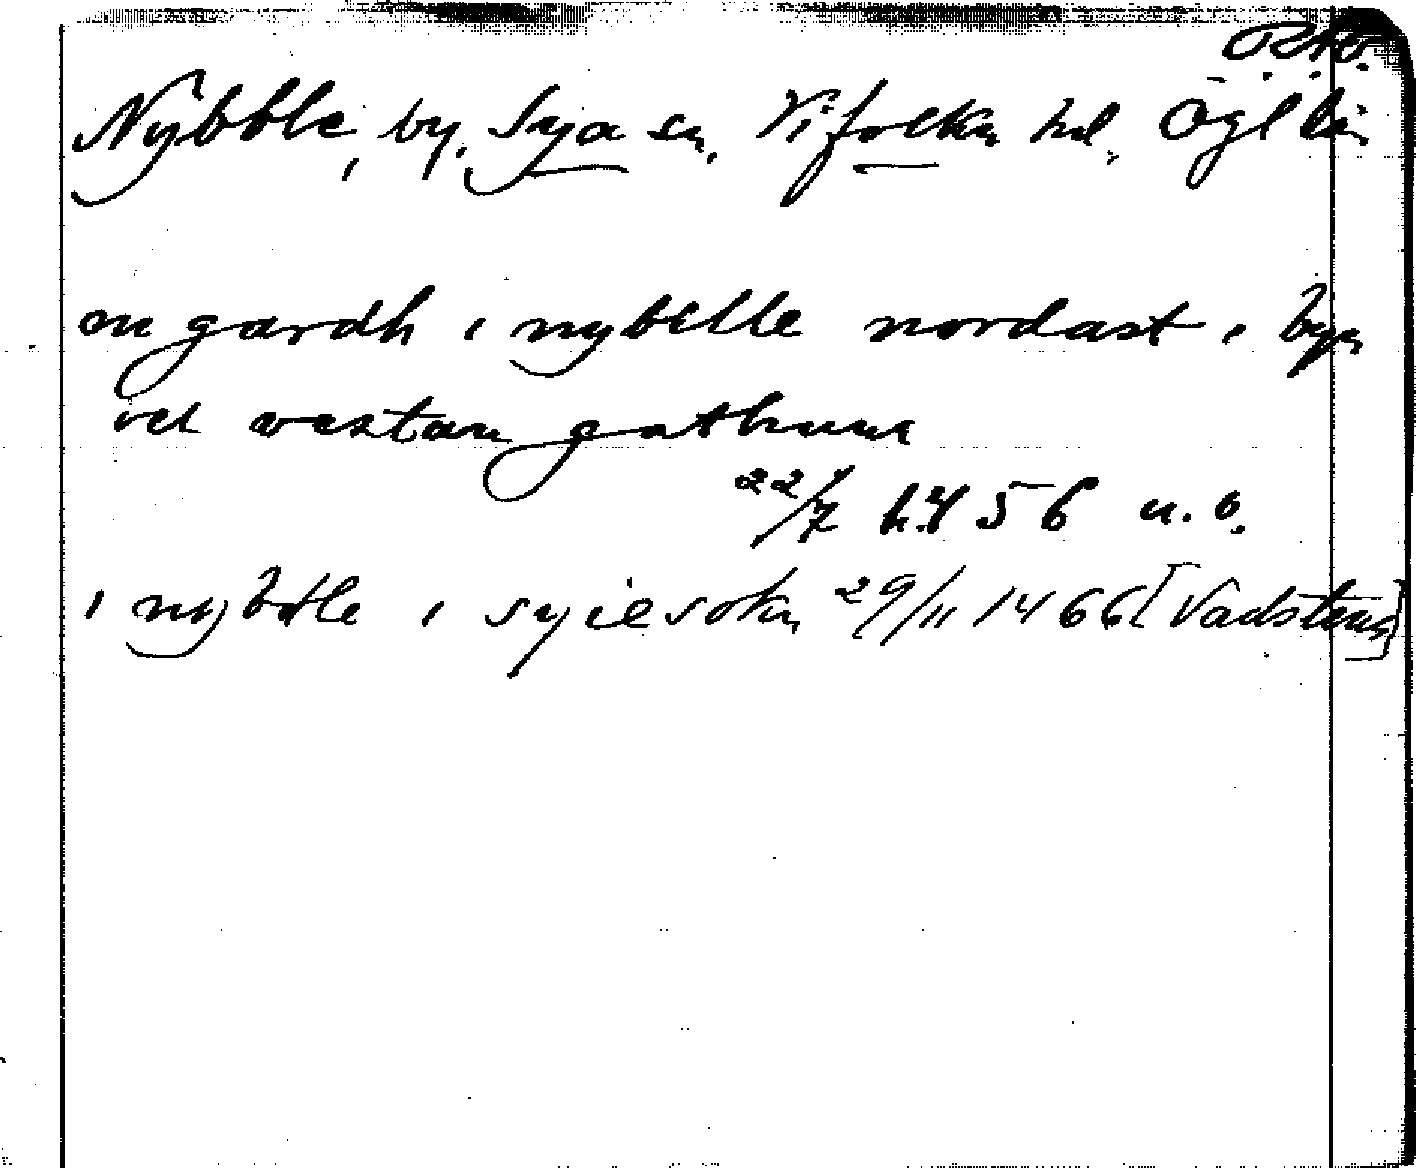 Nybble, by, Sya sn, Vifolka hd, Ögl län
en gardh i nybelle nordast i byn
vel vestan gathune
22/7 1456 u. o.
i nybble i syiesokn 29/11 1466 [Vadstena]